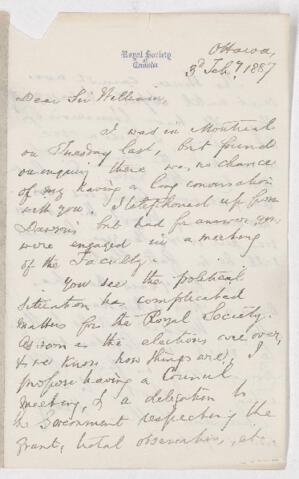 Royal Society
of
Canada
Ottawa,
3d Feby, 1887
Dear Sir William,
I was in Montreal
on Tuesday last, but found
on enquiry there was no chance
of my having a long conversation
with you. I telephoned up from
Dawson's but had for answer you
were engaged in a meeting
of the Faculty.
You see the political
situation has complicated
matters for the Royal Society.
As soon as the elections are over,
& we know how things are, I
propose having a Council
meeting, & a delegation to
the Government respecting the
grant, tidal observation, etc.